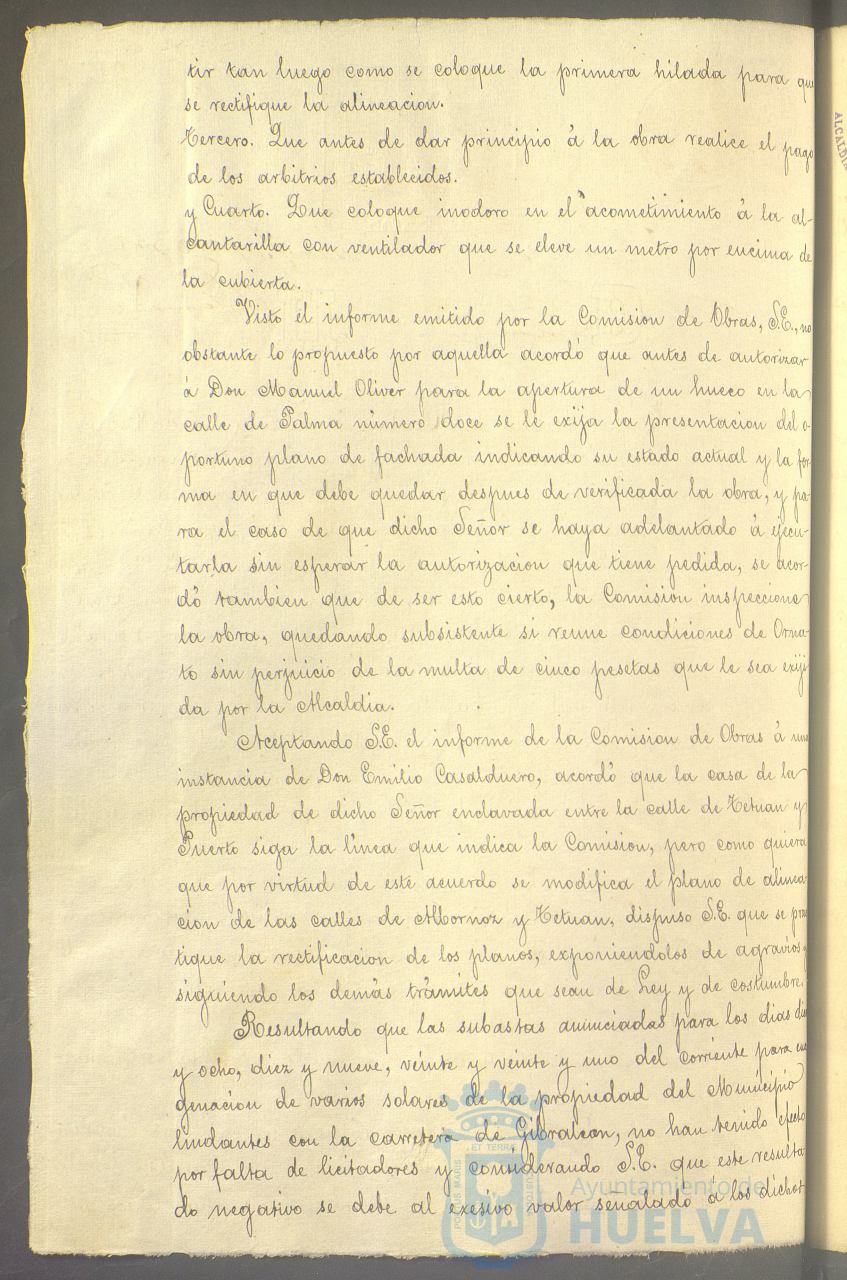 tir tan luego como se coloque la primera hilada para que
se rectifique la alineacion.
Tercero. Que antes de dar principio á la obra realice el pago
de los arbitrios establecidos.
y Cuarto. Que coloque inodoro en el acometimiento á la al-
cantarilla con ventilador que se eleve un metro por encima de
la cubierta.
Visto el informe emitido por la Comision de Obras, S.E., no
obstante lo propuesto por aquella acordó que antes de autorizar
á Don Manuel Oliver para la apertura de un hueco en la
calle de Palma número doce se le exija la presentacion del o-
portuno plano de fachada indicando su estado actual y la for-
ma en que debe quedar despues de verificada la obra, y pa-
ra el caso de que dicho Señor se haya adelantado á ejecu-
tarla sin esperar la autorizacion que tiene pedida, se acor-
dó tambien que de ser esto cierto, la Comision inspeccione
la obra, quedando subsistente si reune condiciones de Orna-
to sin perjuicio de la multa de cinco pesetas que le sea exiji-
da por la Alcaldia.
Aceptando S.E. el informe de la Comision de Obras á una
instancia de Don Emilio Casalduero, acordó que la casa de la
propiedad de dicho Señor enclavada entre la calle de Tetuan y
Puerto siga la línea que indica la Comision, pero como quiera
que por virtud de este acuerdo se modifica el plano de alinea-
cion de las calles de Albornoz y Tetuan, dispuso S.E. que se prac
tique la rectificacion de los planos, exponiendolos de agravios y
siguiendo los demás trámites que sean de Ley y de costumbre.
Resultando que las subastas anunciadas para los dias diez
y ocho, diez y nueve, veinte y veinte y uno del corriente para ena
genacion de varios solares de la propiedad del Municipio
lindantes con la carretera de Gibraleon, no han tenido efecto
por falta de licitadores y considerando S.E. que este resulta
do negativo se debe al exesivo valor señalado a los dichos
ALCALDIA
PORTUS MARIS ET TERRAE CUSTODIA
Ayuntamiento de
HUELVA